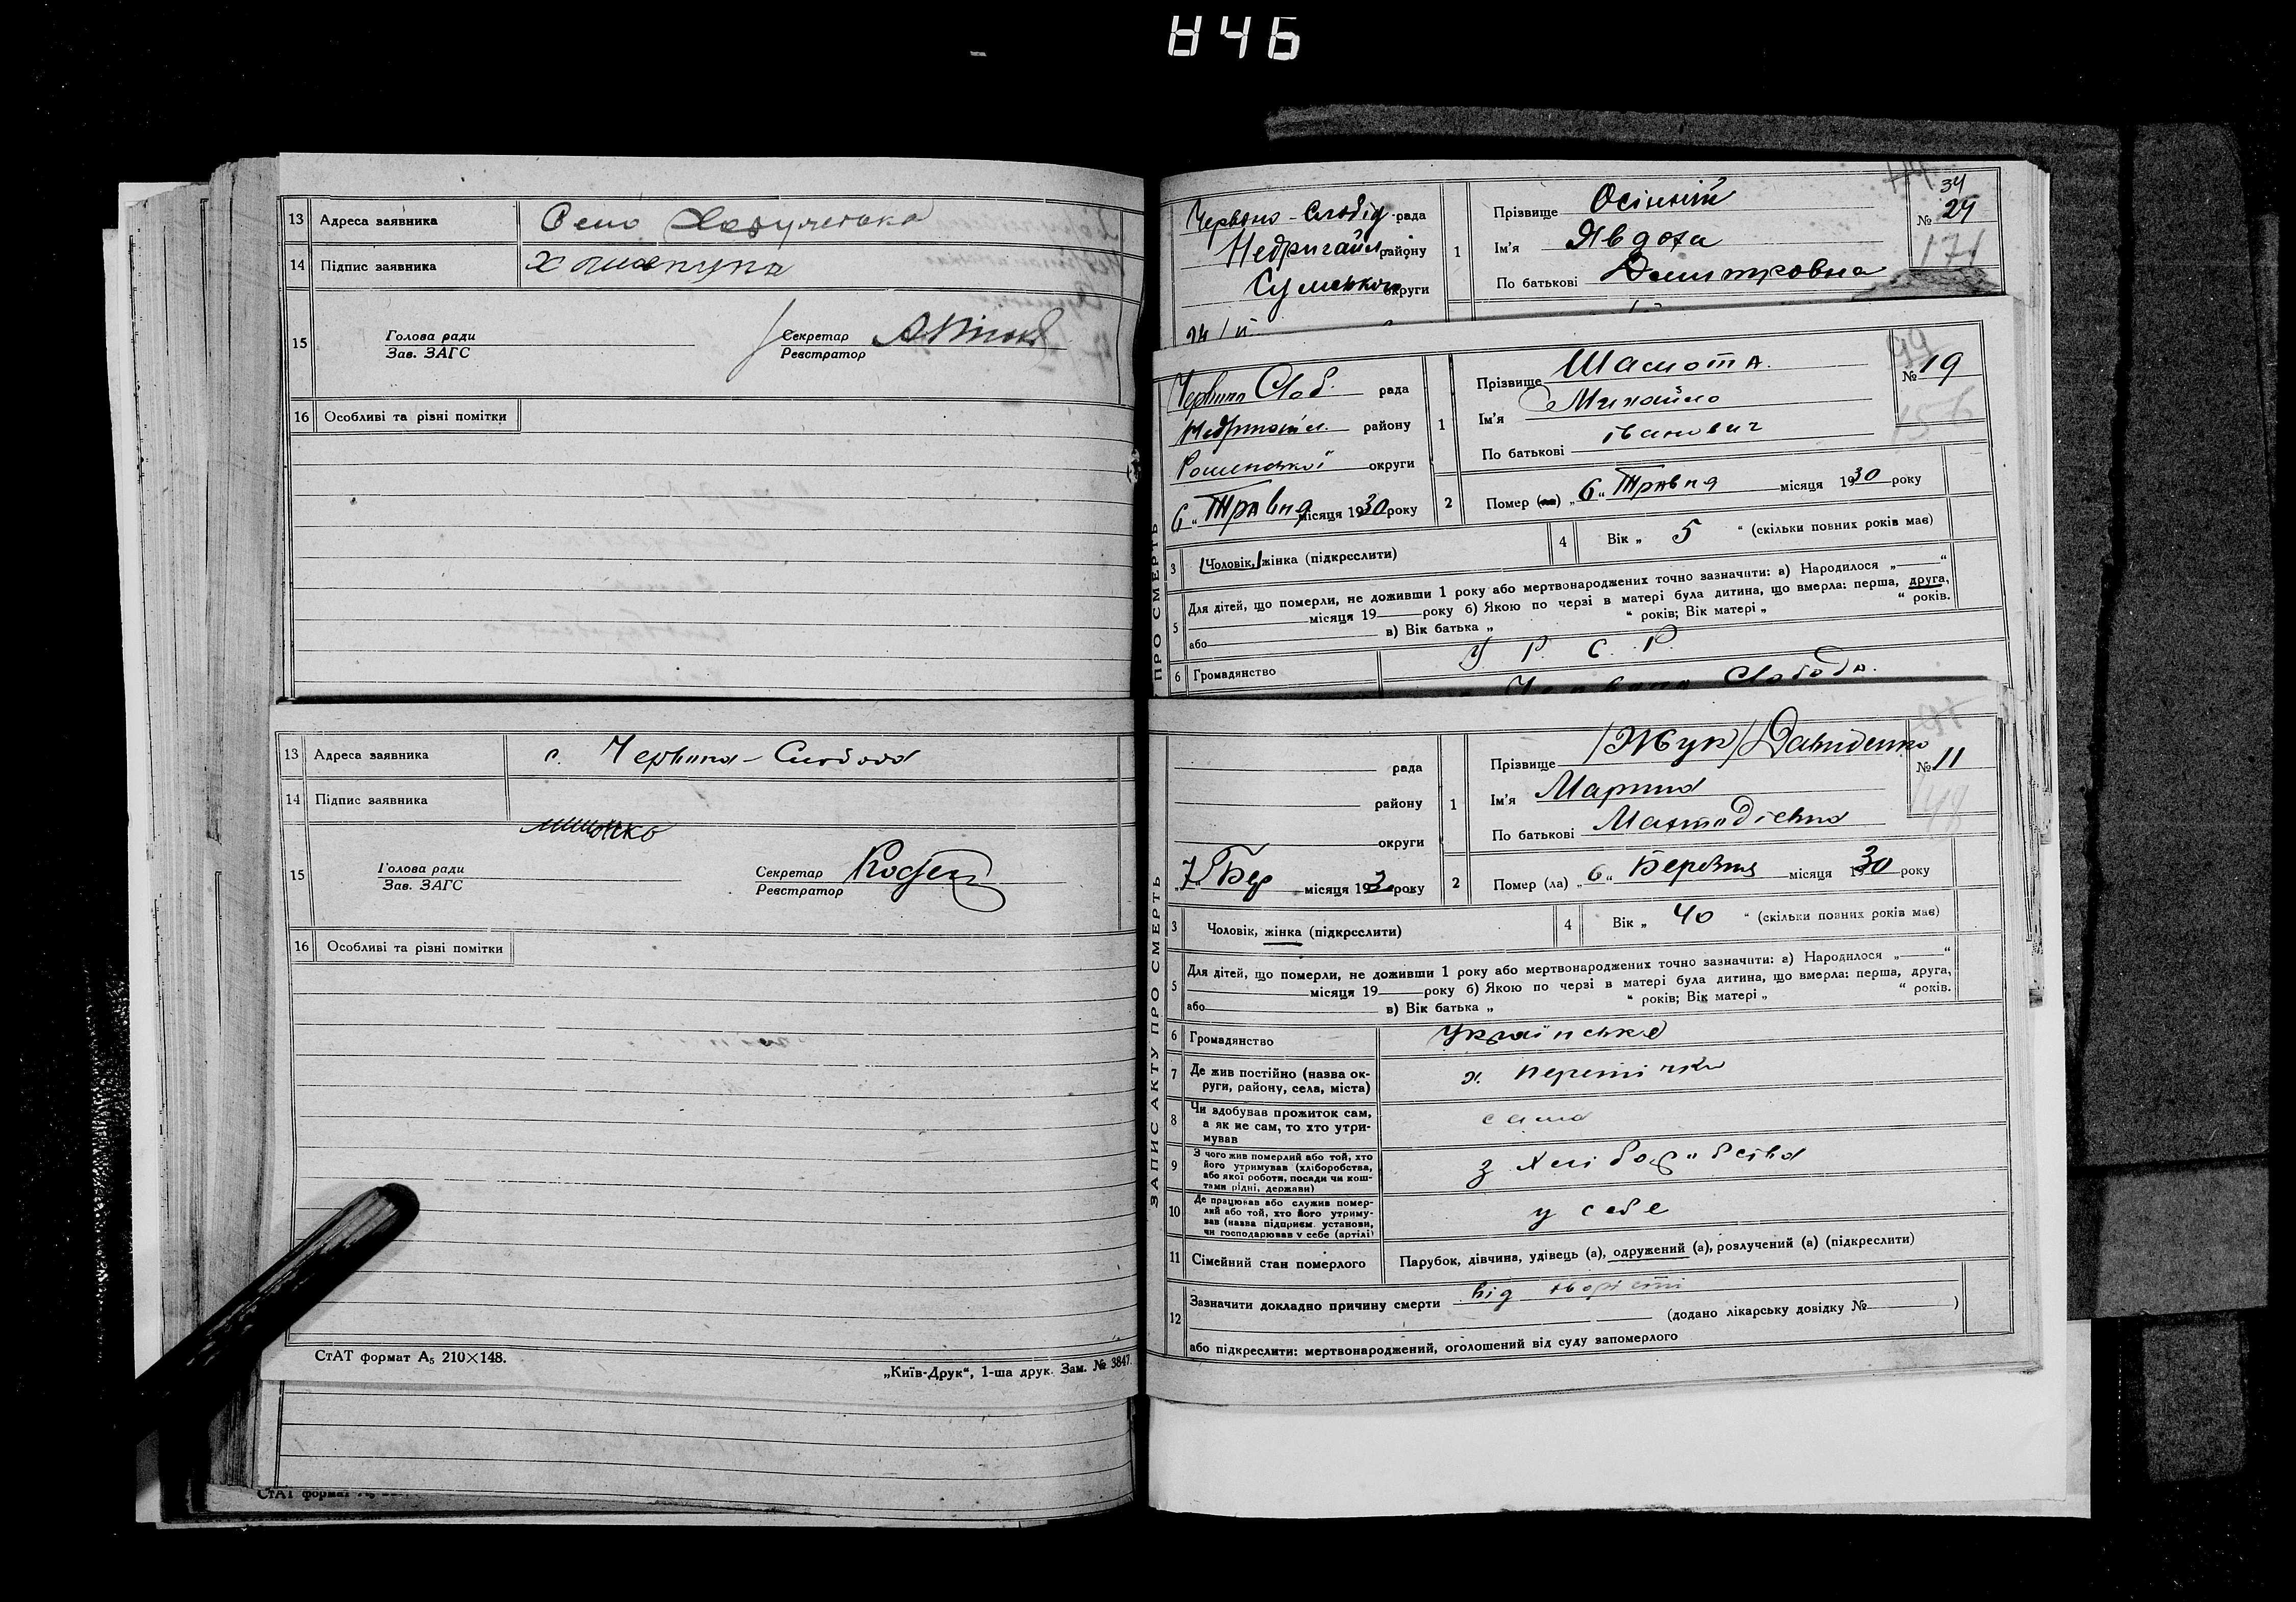 846
13 Адреса заявника Село
14 Підпис заявника
15 Голова ради
Зав. ЗАГС
Секретар
Реєстратор
16 Особливі та різні помітки
13 Адреса заявника с. Червона-Слобода
14 Підпис заявника
15 Голова ради
Зав. ЗАГС
Секретар
Реєстратор
16 Особливі та різні помітки
СтАТ формат А₅ 210×148.
„Київ-Друк“, 1-ша друк. Зам. № 3847.
СтАТ формат
Червоно-Слобід рада
Недригайл району
Сумської округи
1 Прізвище Осінній
Ім'я Явдоха
По батькові Дмитровна
34
№ 24
171
Червоно Слоб. рада
Недригайл. району
Роменської округи
6 „ Травня місяця 1930 року
1 Прізвище Шамота.
Ім'я Михайло
По батькові іванович
99
№ 19
156
2 Помер (ла) „ 6 “ Травня місяця 1930 року
3 Чоловік, жінка (підкреслити)
4 Вік „ 5 “ (скільки повних років має)
5 Для дітей, що померли, не доживши 1 року або мертвонароджених точно зазначити: а) Народилося „ “
місяця 19 року б) Якою по черзі в матері була дитина, що вмерла: перша, друга,
або в) Вік батька „ “ років; Вік матері „ “ років.
6 Громадянство У. Р. С. Р.
Червона Слобода.
ПРО СМЕРТЬ
рада
району
округи
„7“ Бер місяця 193 року
1 Прізвище /Жук/ Давиденко
Ім'я Марина
По батькові
№ 11
148
2 Помер (ла) „ 6 “ Березня місяця 1930 року
3 Чоловік, жінка (підкреслити)
4 Вік „ 40 “ (скільки повних років має)
5 Для дітей, що померли, не доживши 1 року або мертвонароджених точно зазначити: а) Народилося „ “
місяця 19 року б) Якою по черзі в матері була дитина, що вмерла: перша, друга,
або в) Вік батька „ “ років; Вік матері „ “ років.
6 Громадянство Українське
7 Де жив постійно (назва округи, району, села, міста) х. Перетічки
8 Чи здобував прожиток сам, а як не сам, то хто утримував сама
9 З чого жив померлий або той, хто його утримував (хліборобства, або якої роботи, посади чи коштами рідні, держави) з хліборобства
10 Де працював або служив померлий або той, хто його утримував (назва підприєм. установи, чи господарював у себе (артілі) у себе
11 Сімейний стан померлого Парубок, дівчина, удівець (а), одружений (а), розлучений (а) (підкреслити)
12 Зазначити докладно причину смерти від
(додано лікарську довідку № )
або підкреслити: мертвонароджений, оголошений від суду запомерлого
ЗАПИС АКТУ ПРО СМЕРТЬ